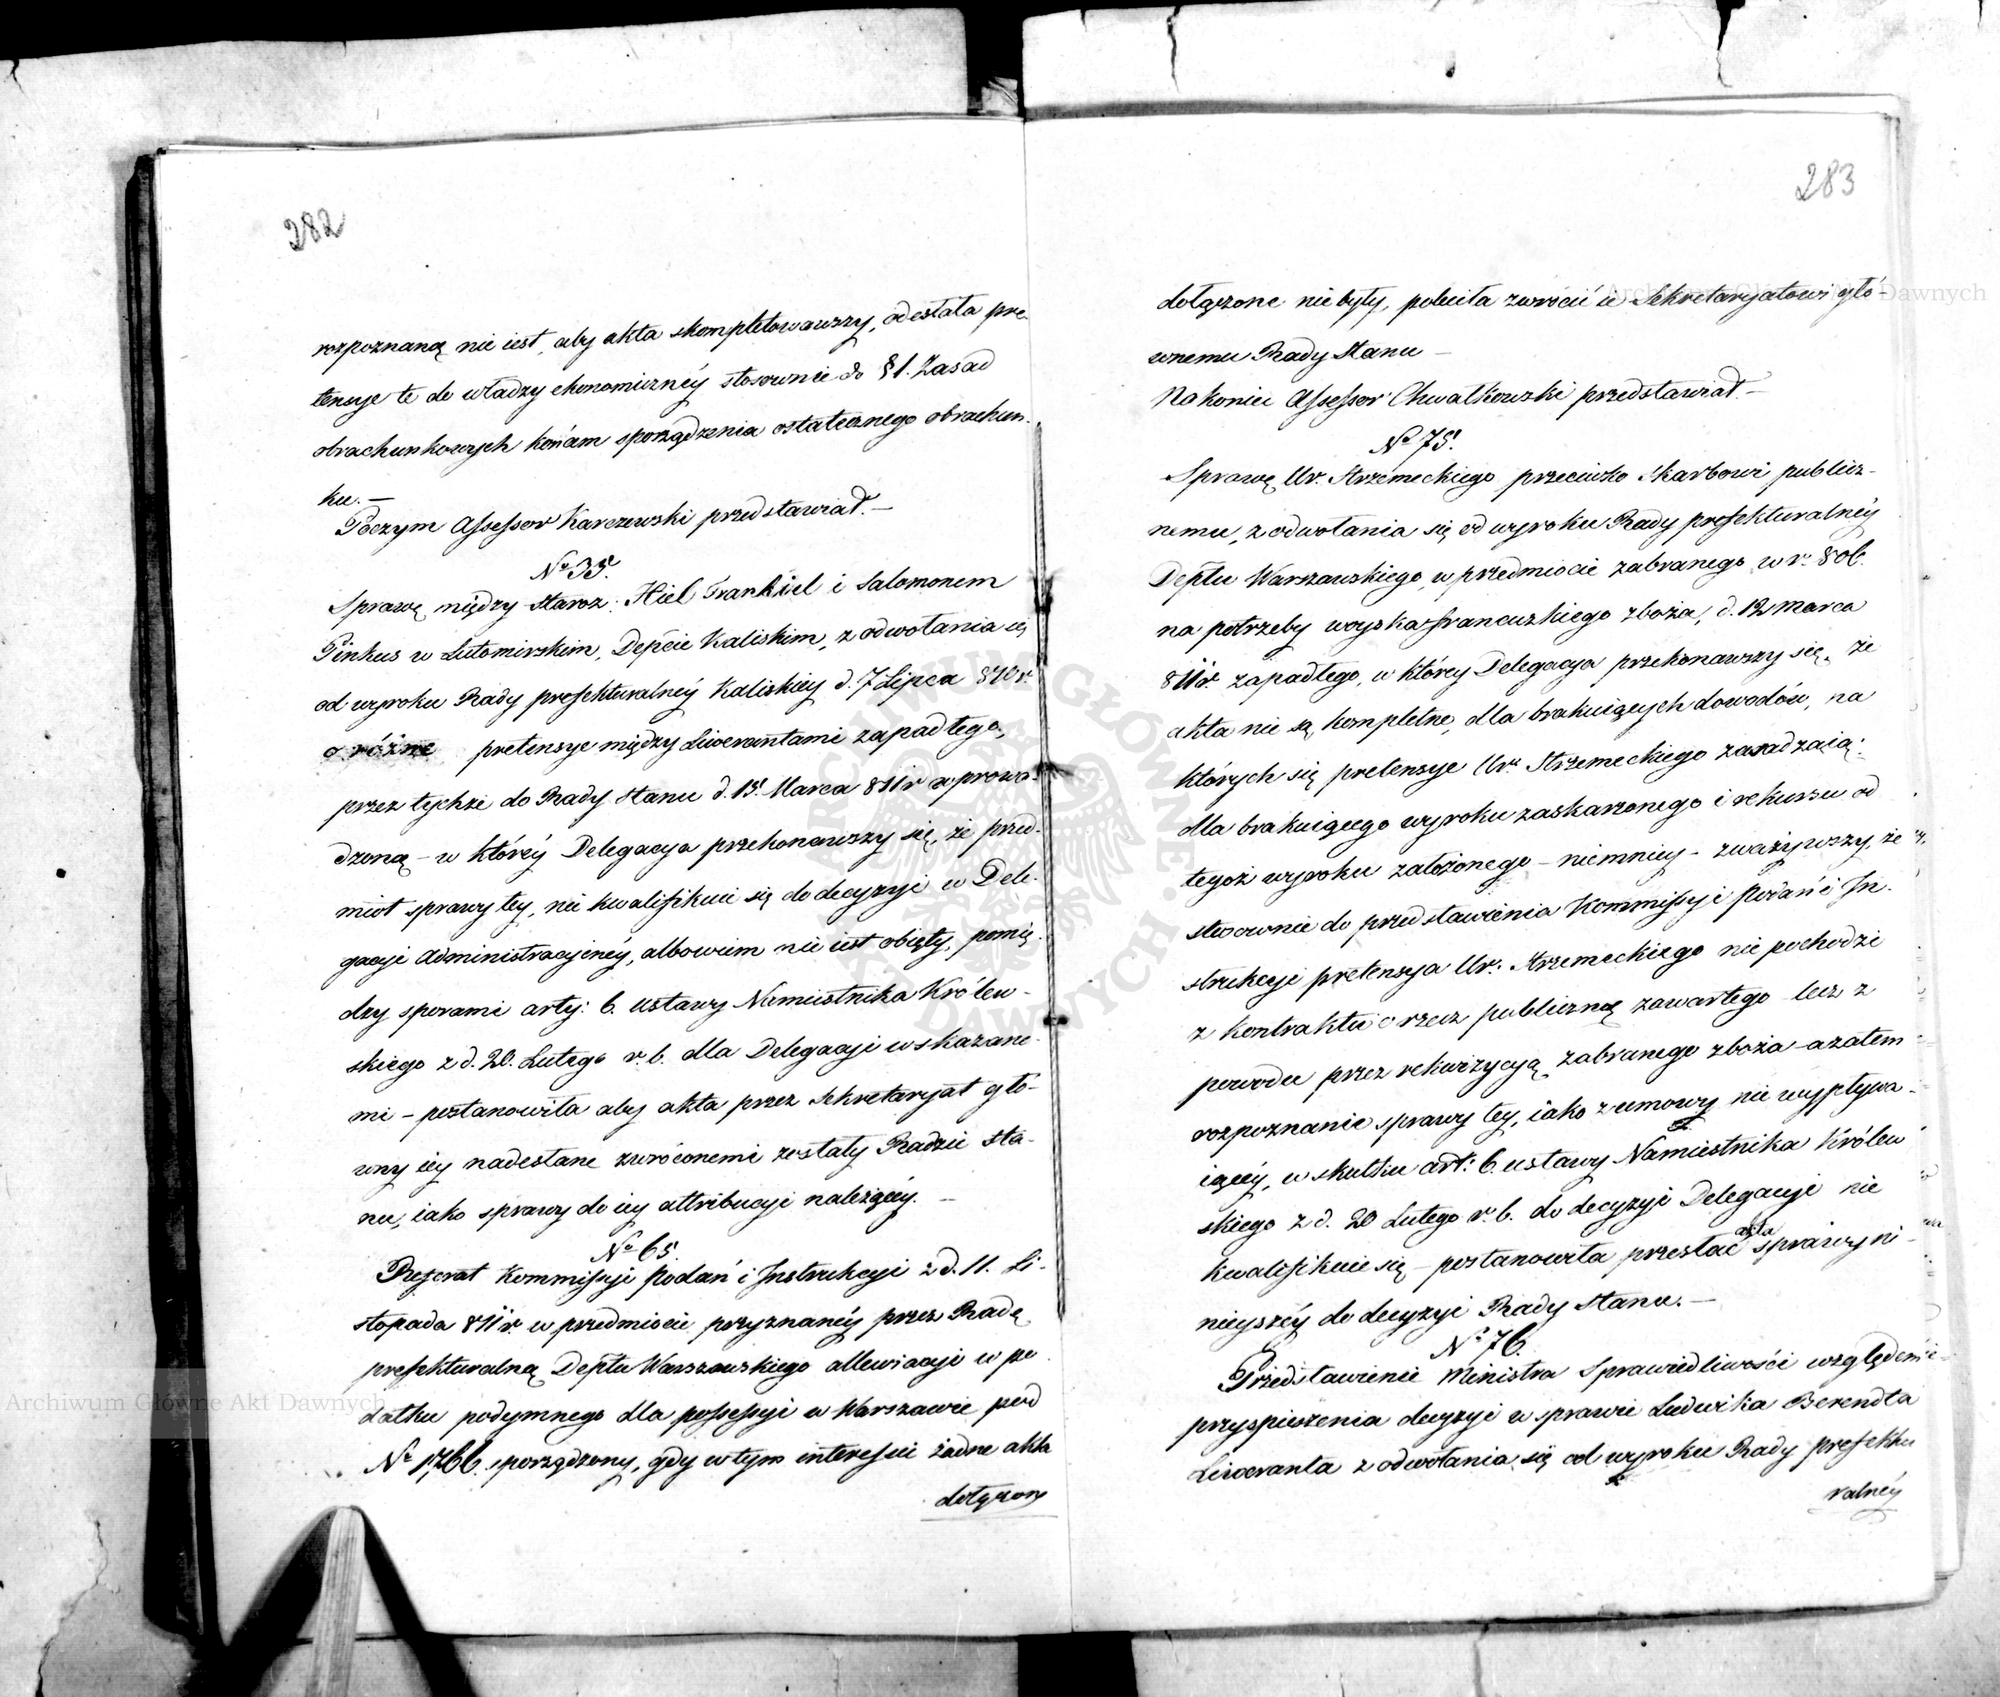 282
rozpoznaną nie iest, aby akta skompletowawszy, odesłała pre-
tensye te do władzy ekonomiczney stosownie do § 1. Zasad
obrachunkowych końcem sporządzenia ostatecznego obrachun-
ku. —
Poczym Assessor Karczewski przedstawiał. —
No 35.
Sprawę między Staroz: Hiel Frankiel i Salomonem
Pinkus w Lutomirskim, Depcie Kaliskim, z odwołania się
od wyroku Rady prefekturalney Kaliskiey d. 7 Lipca 810 r.
o różne pretensye między Liwerantami zapadłego,
przez tychże do Rady Stanu d. 15. Marca 811 r wprowa-
dzoną – w którey Delegacya przekonawszy się, że przed-
miot sprawy tey, nie kwalifikuie się do decyzyi w Dele-
gacyi Administracyiney, albowiem nie iest obięty, pomię-
dzy sporami arty: 6. ustawy Namiestnika Królew-
skiego z d. 20. Lutego r. b. dla Delegacyi wskazane-
mi – postanowiła aby akta przez Sekretaryat głó-
wny iey nadesłane zwróconemi zostały Radzie Sta-
nu, iako sprawy do iey attribucyi należącey. —
No 65.
Referat Kommissyi podań i Instrukcyi z d. 11. Li-
stopada 811 r. w przedmiocie przyznaney przez Radę
prefekturalną Deptu Warszawskiego allewiacyi w po-
datku podymnego dla possessyi w Warszawie pod
No 1766. sporządzony, gdy w tym interessie żadne akta
dołączone
283
dołączone nie były, poleciła zwrócić ie Sekretaryatowi głó-
wnemu Rady Stanu —
Nakoniec Assessor Chwalkowski przedstawiał. —
No 75.
Sprawę Ur. Strzemeckiego przeciwko Skarbowi publicz-
nemu, z odwołania się od wyroku Rady prefekturalney
Deptu Warszawskiego, w przedmiocie zabranego w r. 806.
na potrzeby woyska francuzkiego zboża, d. 12 marca
811 r. zapadłego, w którey Delegacya przekonawszy się, że
akta nie są kompletne, dla brakuiących dowodów, na
których się pretensye Ur. Strzemeckiego zasadzaią:
dla brakuiącego wyroku zaskarżonego i rekursu od
tegoż wyroku założonego – niemniey – zważywszy, że
stosownie do przedstawienia Kommissyi podań i In-
strukcyi pretensya Ur. Strzemeckiego nie pochodzi
z kontraktu o rzecz publiczną zawartego lecz z
powodu przez rekwizycyą zabranego zboża – a zatem
rozpoznanie sprawy tey, iako z umowy nie wypływa-
iącey, w skutku art: 6. ustawy Namiestnika Królew-
skiego z d. 20 Lutego r. b. do decyzyi Delegacyi nie
kwalifikuie się – postanowiła przesłać akta sprawy ni-
nieyszey do decyzyi Rady Stanu. —
No 76.
Przedstawienie Ministra Sprawiedliwości względem
przyspieszenia decyzyi w sprawie Ludwika Berendta
Liweranta z odwołania się od wyroku Rady prefektu
ralney